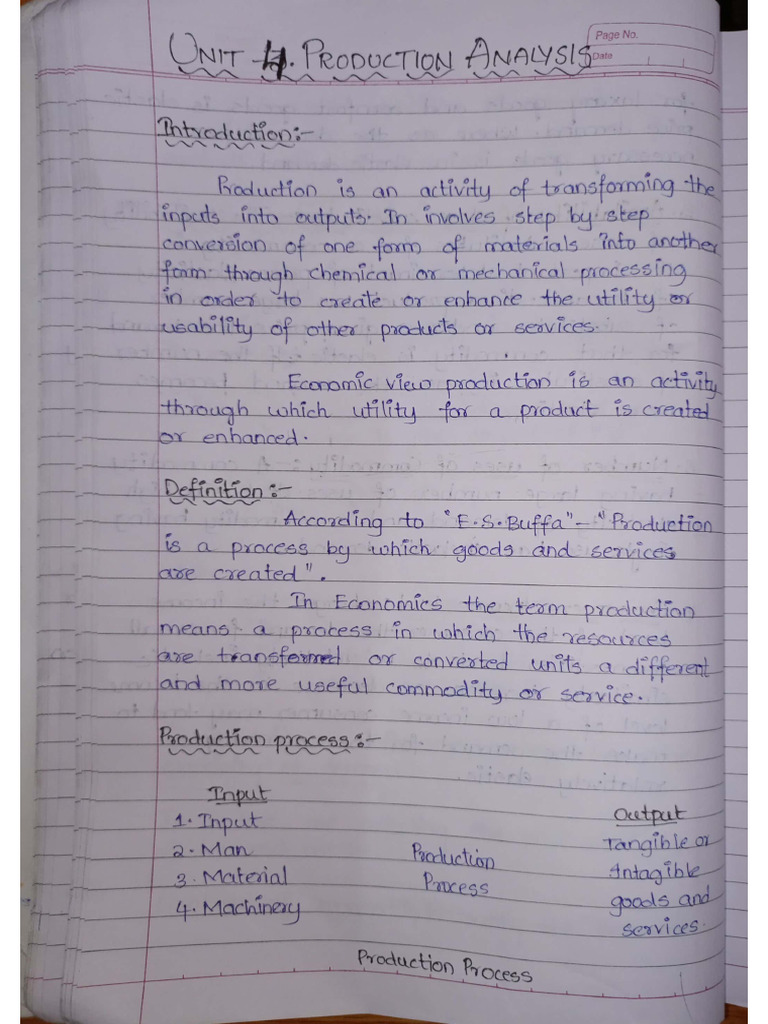 Page No.
Date
UNIT-4. PRODUCTION ANALYSIS
Introduction:-
Production is an activity of transforming the
inputs into outputs. In involves step by step
conversion of one form of materials into another
form through chemical or mechanical processing
in order to create or enhance the utility or
usability of other products or services.
Economic view production is an activity
through which utility for a product is created
or enhanced.
Definition:-
According to "E.S.Buffa"- "Production
is a process by which goods and services
are created".
In Economics the term production
means a process in which the resources
are transformed or converted units a different
and more useful commodity or service.
Production process:-
Input
1. Input
2. Man
3. Material
4. Machinery
Production
Process
Output
Tangible or
Intagible
goods and
services.
Production Process